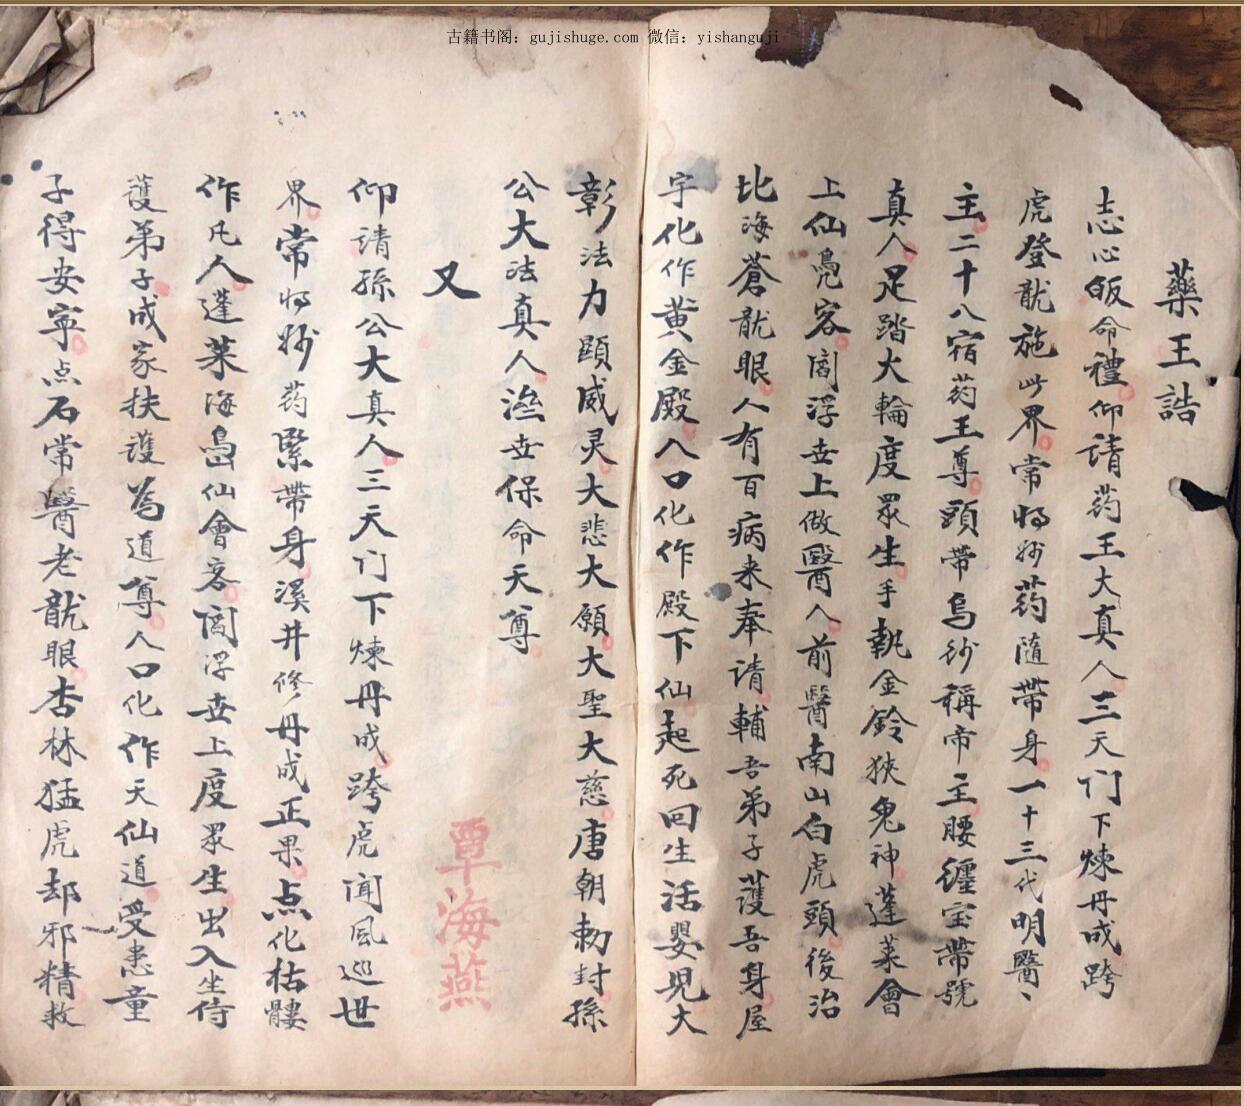 古籍书阁：gujishuge.com 微信：yishanguji
藥王誥
志心皈命禮仰请药王大真人三天门下煉丹成跨
虎登龍施此界常将妙药隨带身一十三代明醫、
主二十八宿药王尊頭带乌纱稱帝主腰纏宝带號
真人足踏大輪度眾生手執金鈴狹鬼神蓬莱會
上仙凫客阎浮世上做醫人前醫南山白虎頭後治
北海蒼龍眼人有百病来奉请輔吾弟子護吾身屋
宇化作黄金殿人口化作殿下仙起死回生活嬰児大
彰法力顕威灵大悲大願大聖大慈唐朝勅封孫
公大法真人濟世保命天尊
又
仰请孫公大真人三天门下煉丹成跨虎闻風巡世
界常将妙药緊带身溪井修丹成正果点化枯髅
作凡人蓬莱海島仙會客阎浮世上度眾生出入坐侍
護弟子成家扶護為道尊人口化作天仙道受患童
子得安寕点石常醫老龍眼杏林猛虎却邪精救
覃海燕